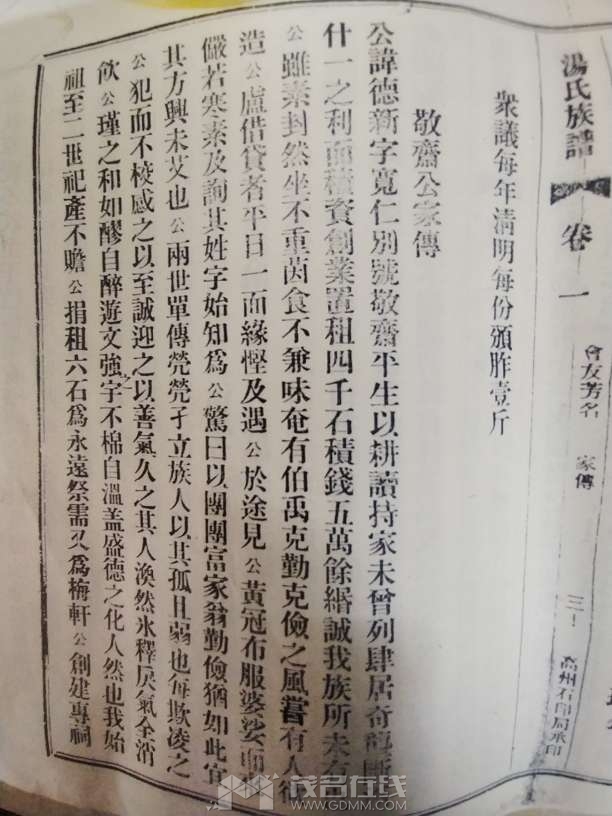 湯氏族譜 卷一 會友芳名 家傳 三
高州石印局承印
衆議每年清明每份頒胙壹斤
敬齋公家傳
公諱德新字寬仁別號敬齋平生以耕讀持家未曾列肆居奇
什一之利而積資創業置租四千石積錢五萬餘緡誠我族所未有
公雖素封然坐不重茵食不兼味奄有伯禹克勤克儉之風嘗有人
造公廬借貸者平日一面緣慳及遇公於途見公黃冠布服婆娑
儼若寒素及詢其姓字始知爲公驚曰以團團富家翁勤儉猶如此宜
其方興未艾也公兩世單傳煢煢孑立族人以其孤且弱也每欺凌之
公犯而不校感之以至誠迎之以善氣久之其人渙然氷釋戾氣全消
飲公瑾之和如醪自醉遊文強字不棉自溫盖盛德之化人然也我始
祖至二世祀產不贍公捐租六石爲永遠祭需又爲梅軒公創建專祠
茂名在线
WWW.GDMM.COM